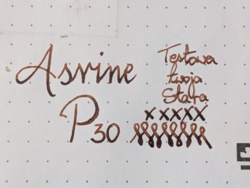 Asvine
P30
Testowa
twoja
stara
x x x x x